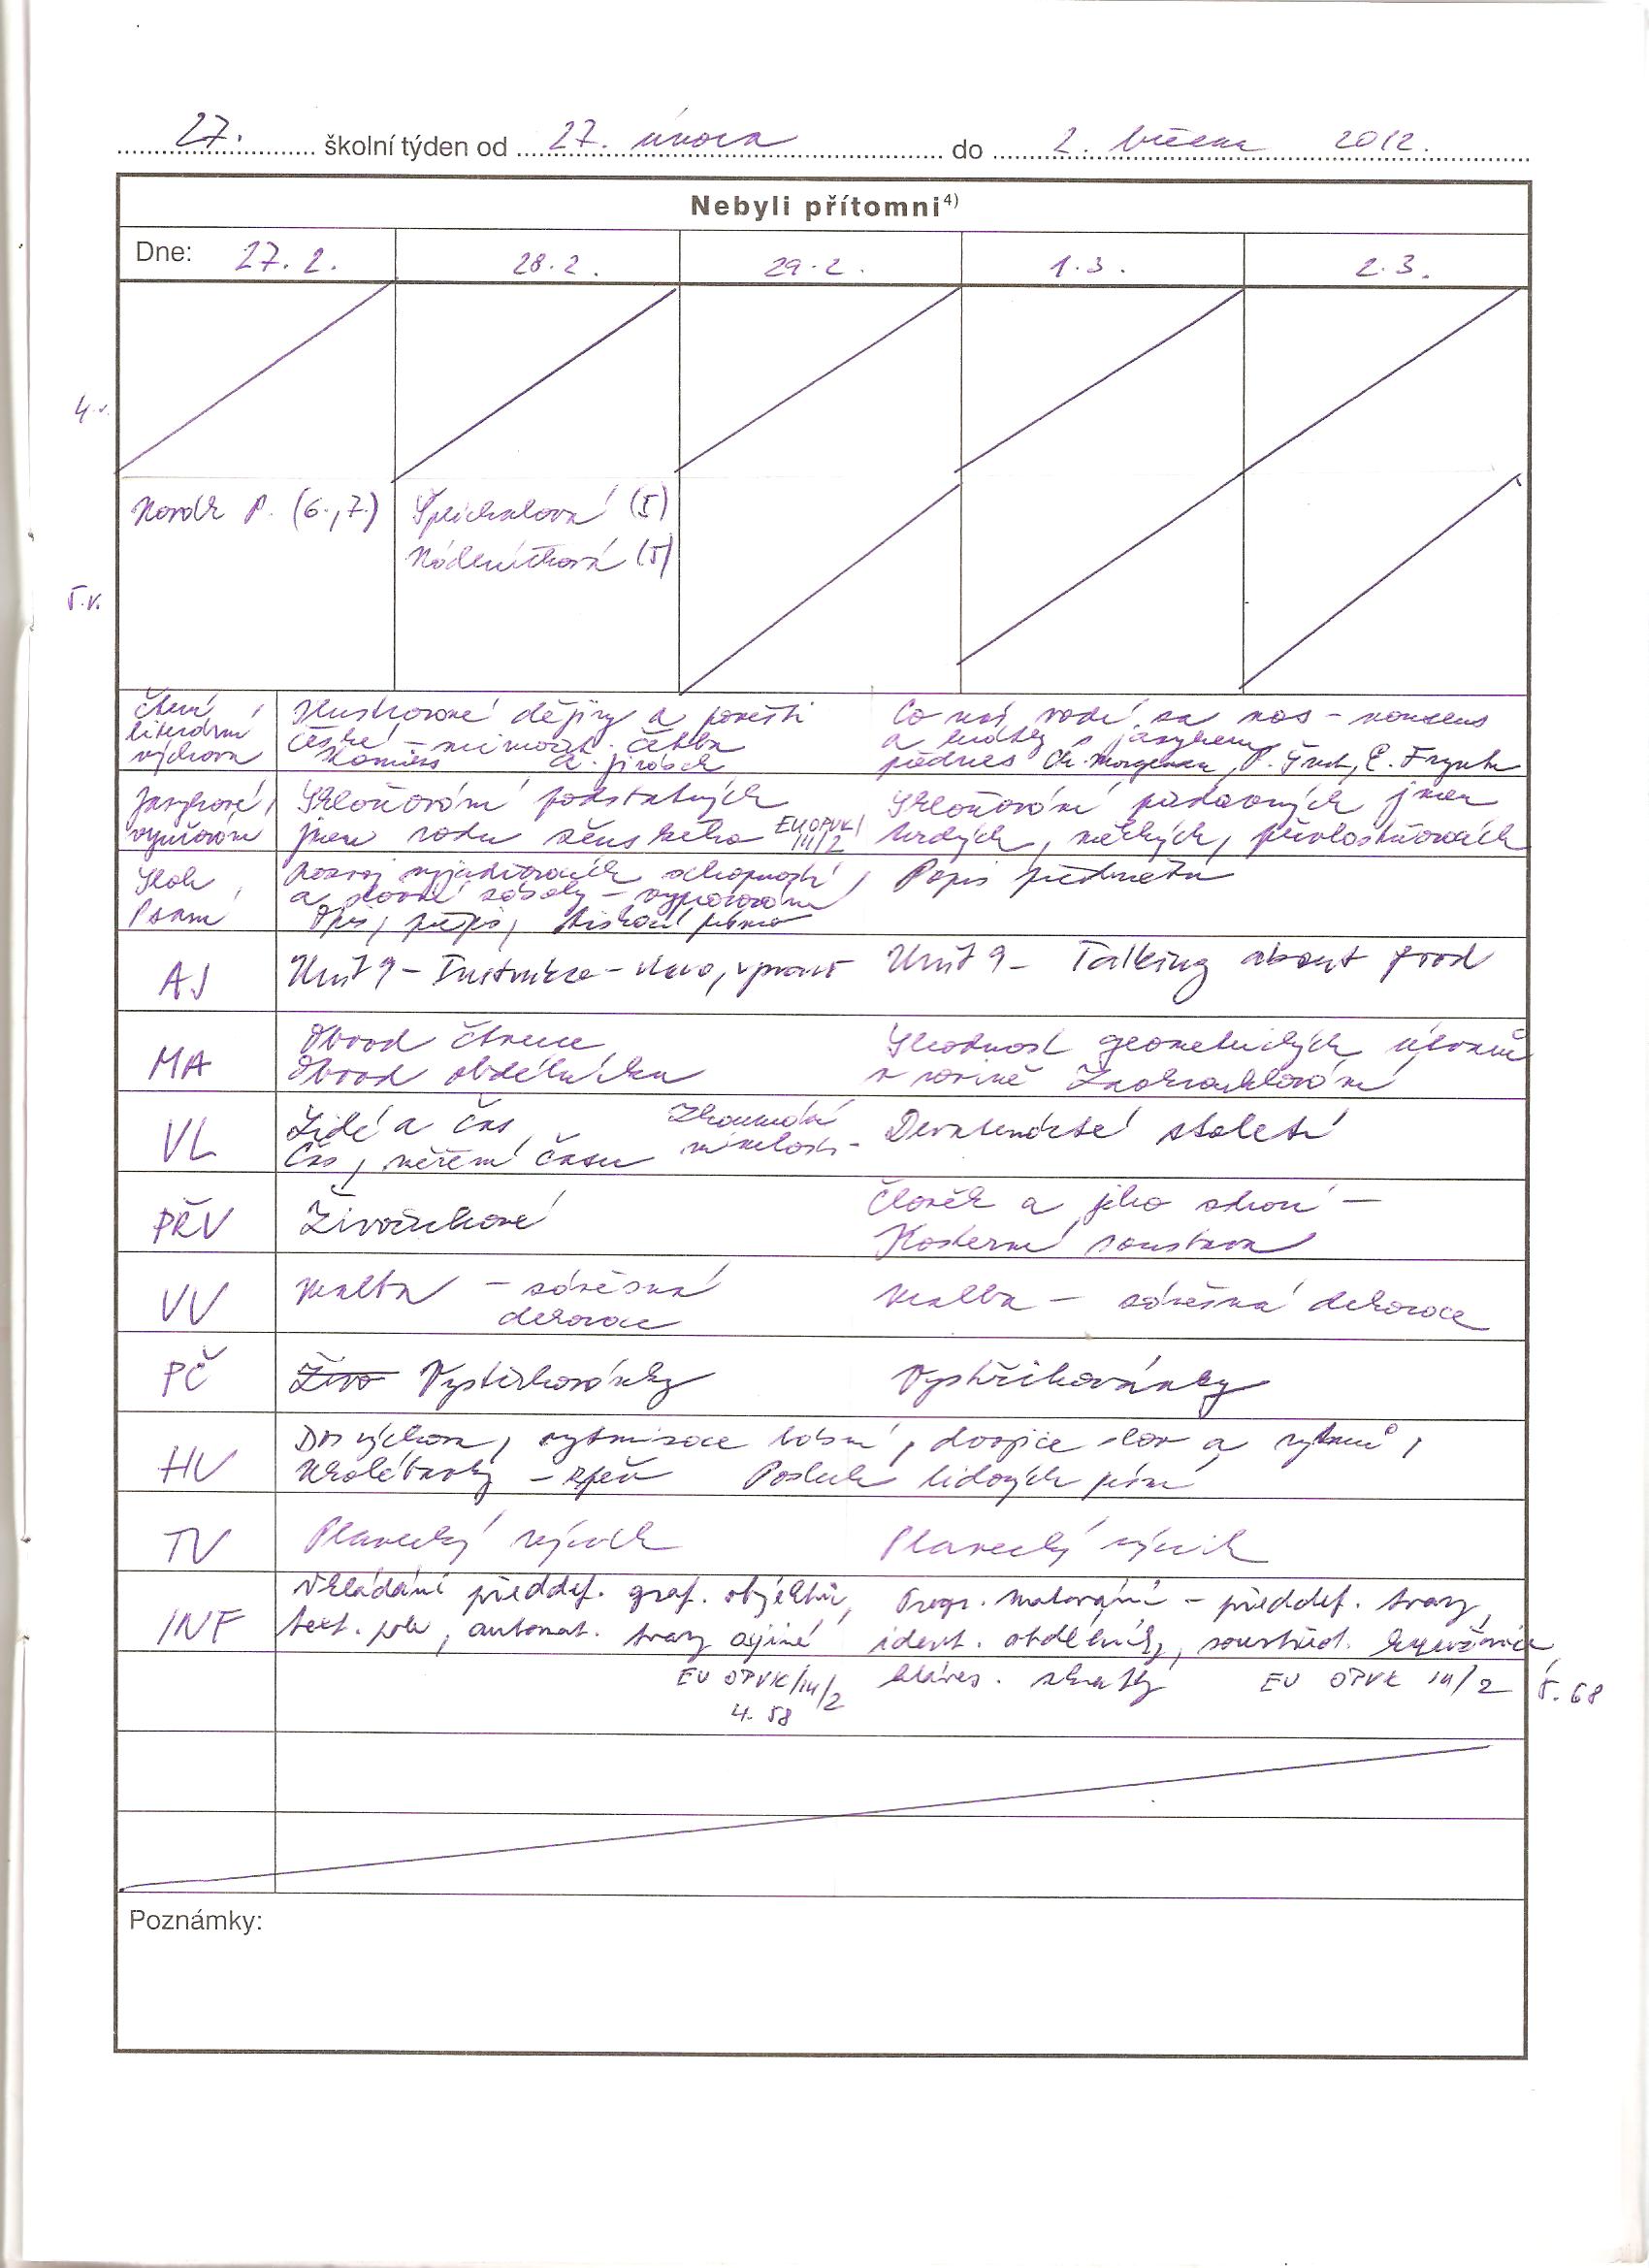 27. školní týden od 27. února do 2. března 2012.
Nebyli přítomni4)
Dne: 27. 2. 28. 2. 29. 2. 1. 3. 2. 3.
4. r.
P. (6., 7.) Špíchalová (5)
(5)
5. r.
Čtení, Ilustrované dějiny a pověsti Co nás vodí za nos - nonsens
literární české - mimočít. četba a hrátky s jazykem
výchova Komiks A. Jirásek přednes Ch. Morgenstern, P. Šrut, E. Frynta
Jazykové Skloňování podstatných Skloňování přídavných jmen
vyučování jmen rodu ženského EU OPVK/ III/2 tvrdých, měkkých, přivlastňovacích
Sloh, Rozvoj vyjadřovacích schopností Popis předmětu
a slovní zásoby - vypravování
Psaní Opis, přepis, tiskací písmo
AJ Unit 9 - vlevo, vpravo Unit 9 - Talking about food
MA Obvod čtverce Shodnost geometrických útvarů
Obvod obdélníku v rovině Zaokrouhlování
VL Lidé a čas Zkoumání Devatenácté století
Čas, měření času minulosti -
PŘV Živočichové Člověk a jeho zdraví -
Kosterní soustava
VV Malba - závěsná Malba - závěsná dekorace
dekorace
PČ Živo Vystřihovánky Vystřihovánky
HV rytmizace básní, dvojice slov a rytmů,
Koloběžky - zpěv Poslech lidových písní
TV Plavecký výcvik Plavecký výcvik
INF Vkládání předdef. graf. objektů, Progr. malování - předdef. tvary,
text. pole, automat. tvary a jiné ident. obdélníky, soustřed. kružnice,
EU OPVK/III/2 kláves. zkratky EU OPVK III/2 5. 68
4. 58
Poznámky: